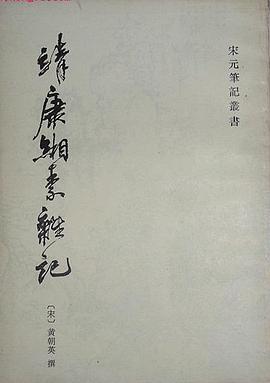 宋元筆記叢書
靖康緗素雜記
〔宋〕黃朝英 撰